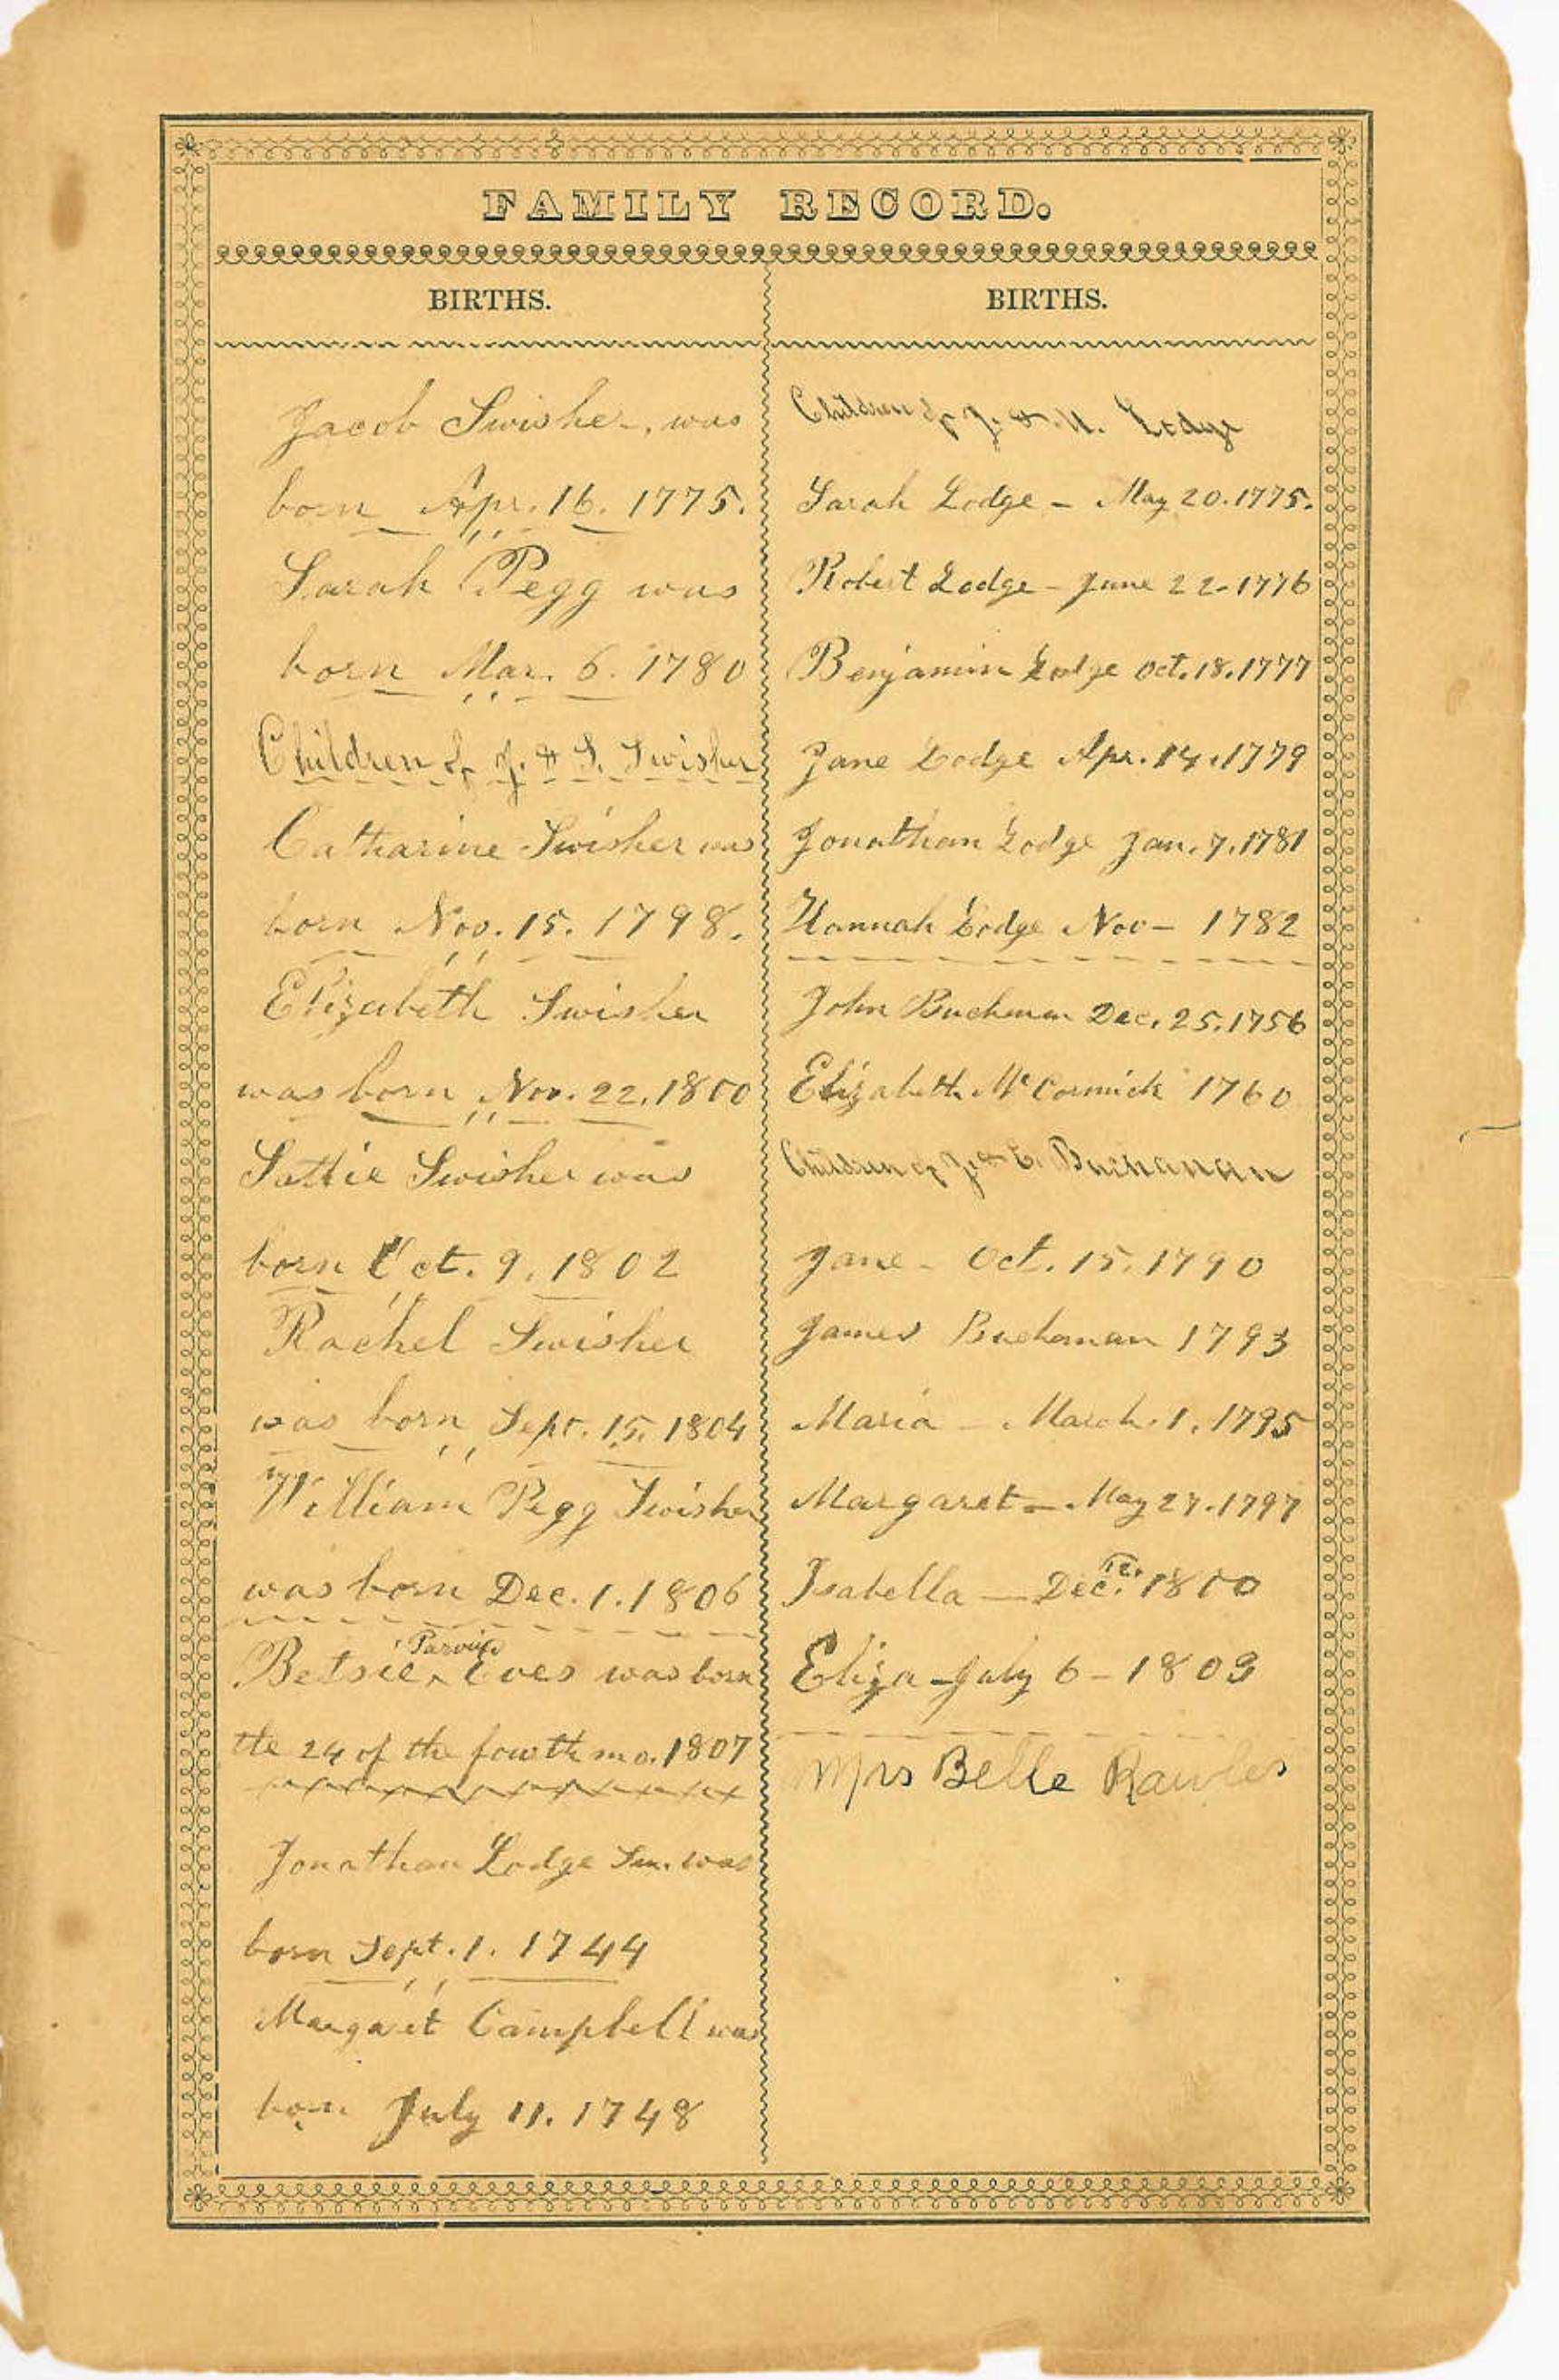 FAMILY RECORD.
BIRTHS.
Jacob Swisher, was
born Apr. 16. 1775.
Sarah Pegg was
born Mar. 6. 1780
Children of J. & S. Swisher
Catharine Swisher was
born Nov. 15. 1798.
Elizabeth Swisher
was born Nov. 22. 1800
Sattie Swisher was
born Oct. 9. 1802
Rachel Swisher
was born Sept. 15. 1804
William Pegg Swisher
was born Dec. 1. 1806
Parvin
Betsie Eves was born
the 24 of the fourth mo. 1807
Jonathan Lodge Sen. was
born Sept. 1. 1744
Margaret Campbell was
born July 11. 1748
BIRTHS.
Children of J. & M. Lodge
Sarah Lodge - May 20. 1775.
Robert Lodge - June 22 - 1776
Benjamin Lodge Oct. 18. 1777
Jane Lodge Apr. 14. 1779
Jonathan Lodge Jan. 7. 1781
Hannah Lodge Nov - 1782
John Buchanan Dec. 25. 1756
Elizabeth McCormick 1760
Children of J. & E. Buchanan
Jane - Oct. 15. 1790
James Buchanan 1793
Maria - March. 1. 1795
Margaret - May 27. 1797
Isabella - Dec. 12. 1800
Eliza - July 6 - 1803
Mrs Belle Rawles